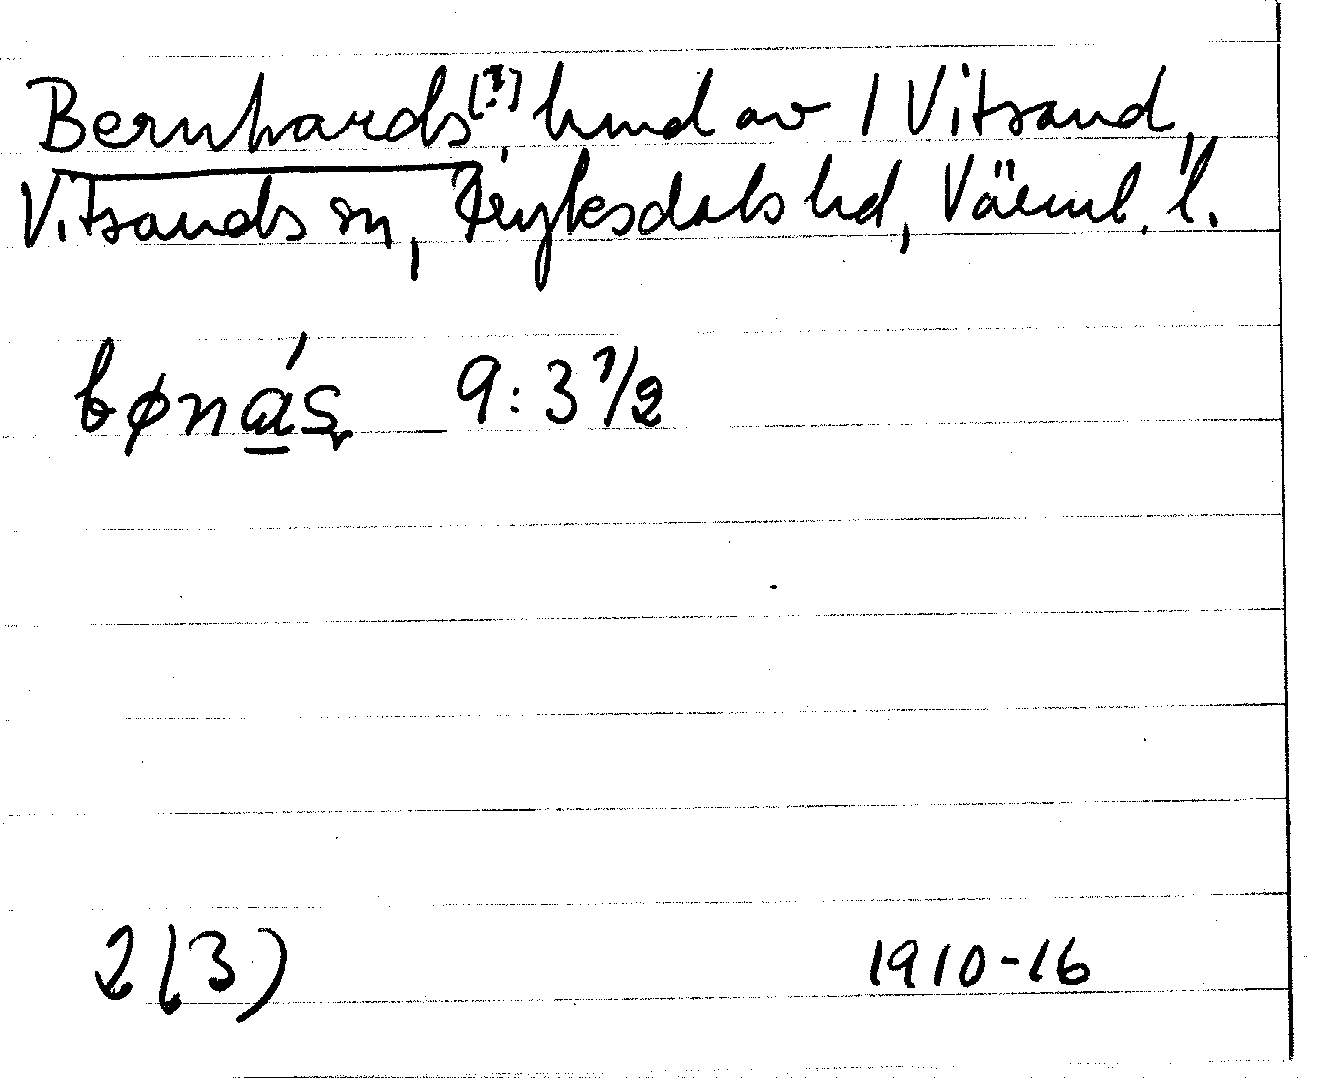 Bernhards [?], hmd av 1 Vitsand,
Vitsands sn, Fryksdals hd, Värml. l.
bønás 9:3 1/2
2(3) 1910-16